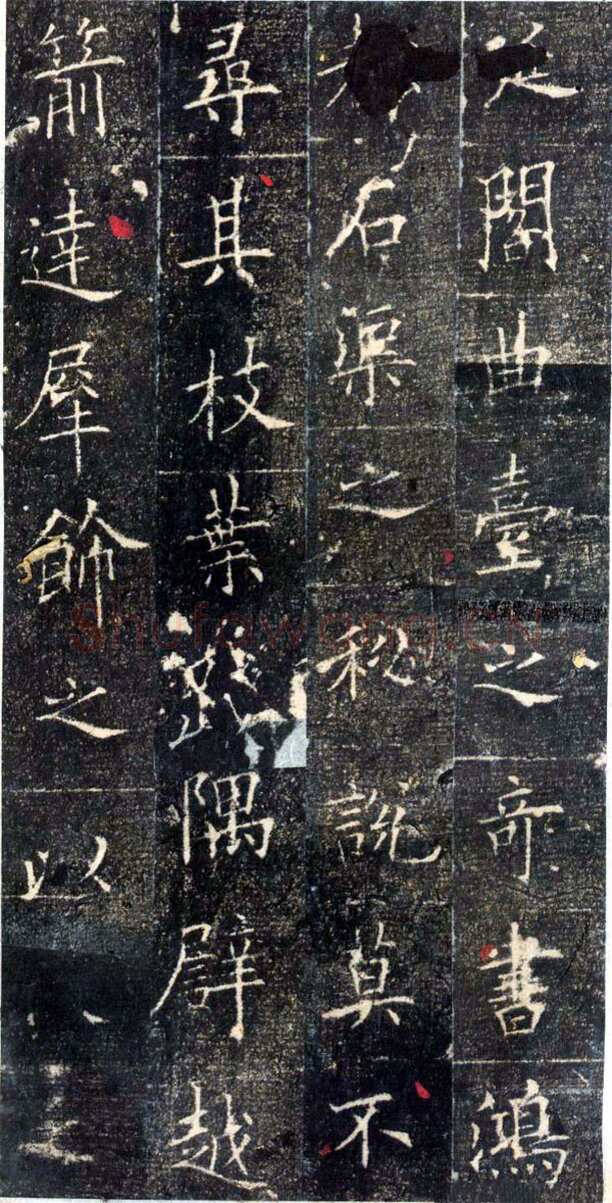 延閣曲臺之奇書鴻
石渠之秘說莫不
尋其枝葉隅辟越
箭達犀飾之以
Shufawang.CN